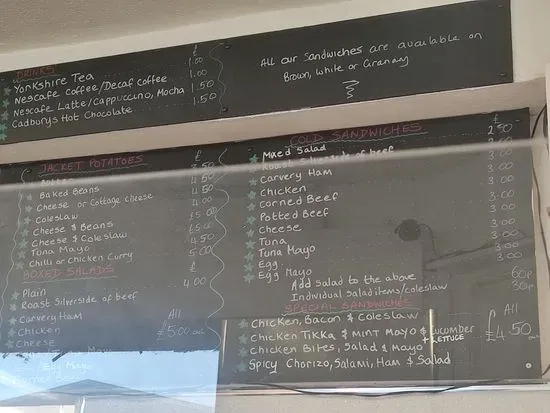 DRINKS £
Yorkshire Tea 1.00
Nescafe Coffee/Decaf Coffee 1.00
Nescafe Latte/Cappuccino, Mocha 1.50
Cadburys Hot Chocolate 1.50
All our Sandwiches are available on
Brown, White or Granary
JACKET POTATOES £
3.50
Baked Beans 4.50
Cheese or Cottage Cheese 4.50
Coleslaw 4.00
Cheese & Beans £5.00
Cheese & Coleslaw £5.00
Tuna Mayo 4.50
Chilli or Chicken Curry 5.00
BOXED SALADS £
Plain 4.00
Roast Silverside of beef
Carvery Ham All
Chicken £5.00 each
Cheese
Egg Mayo
COLD SANDWICHES £
Mixed Salad 2.50
Roast Silverside of beef 3.00
Carvery Ham 3.00
Chicken 3.00
Corned Beef 3.00
Potted Beef 3.00
Cheese 3.00
Tuna 3.00
Tuna Mayo 3.00
Egg 3.00
Egg Mayo 3.00
Add Salad to the above 60p
Individual Salad items/coleslaw 30p
SPECIAL SANDWICHES
Chicken, Bacon & Coleslaw All
Chicken Tikka & Mint Mayo & Cucumber + Lettuce £4.50 each
Chicken Bites, Salad & Mayo
Spicy Chorizo, Salami, Ham & Salad